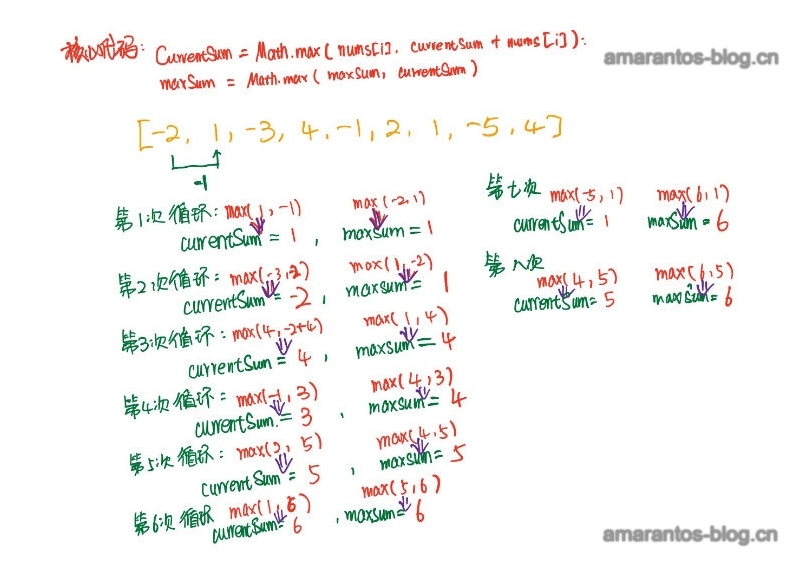 核心代码: CurrentSum = Math.max( nums[i], currentSum + nums[i]);
maxSum = Math.max( maxSum, currentSum)
amarantos-blog.cn
[-2, 1, -3, 4, -1, 2, 1, -5, 4]
-1
第1次循环: max(1, -1) max(-2, 1)
currentSum = 1 , maxsum = 1
第2次循环: max(-3, -2) max(1, -2)
currentSum = -2 , maxsum = 1
第3次循环: max(4, -2+4) max(1, 4)
currentSum = 4 , maxsum = 4
第4次循环: max(-1, 3) max(4, 3)
currentSum = 3 , maxsum = 4
第5次循环: max(2, 5) max(4, 5)
currentSum = 5 , maxsum = 5
第6次循环 max(1, 6) max(5, 6)
currentSum = 6 , maxsum = 6
第七次 max(-5, 1) max(6, 1)
currentSum = 1 maxSum = 6
第八次
max(4, 5) max(6, 5)
currentSum = 5 maxSum = 6
amarantos-blog.cn